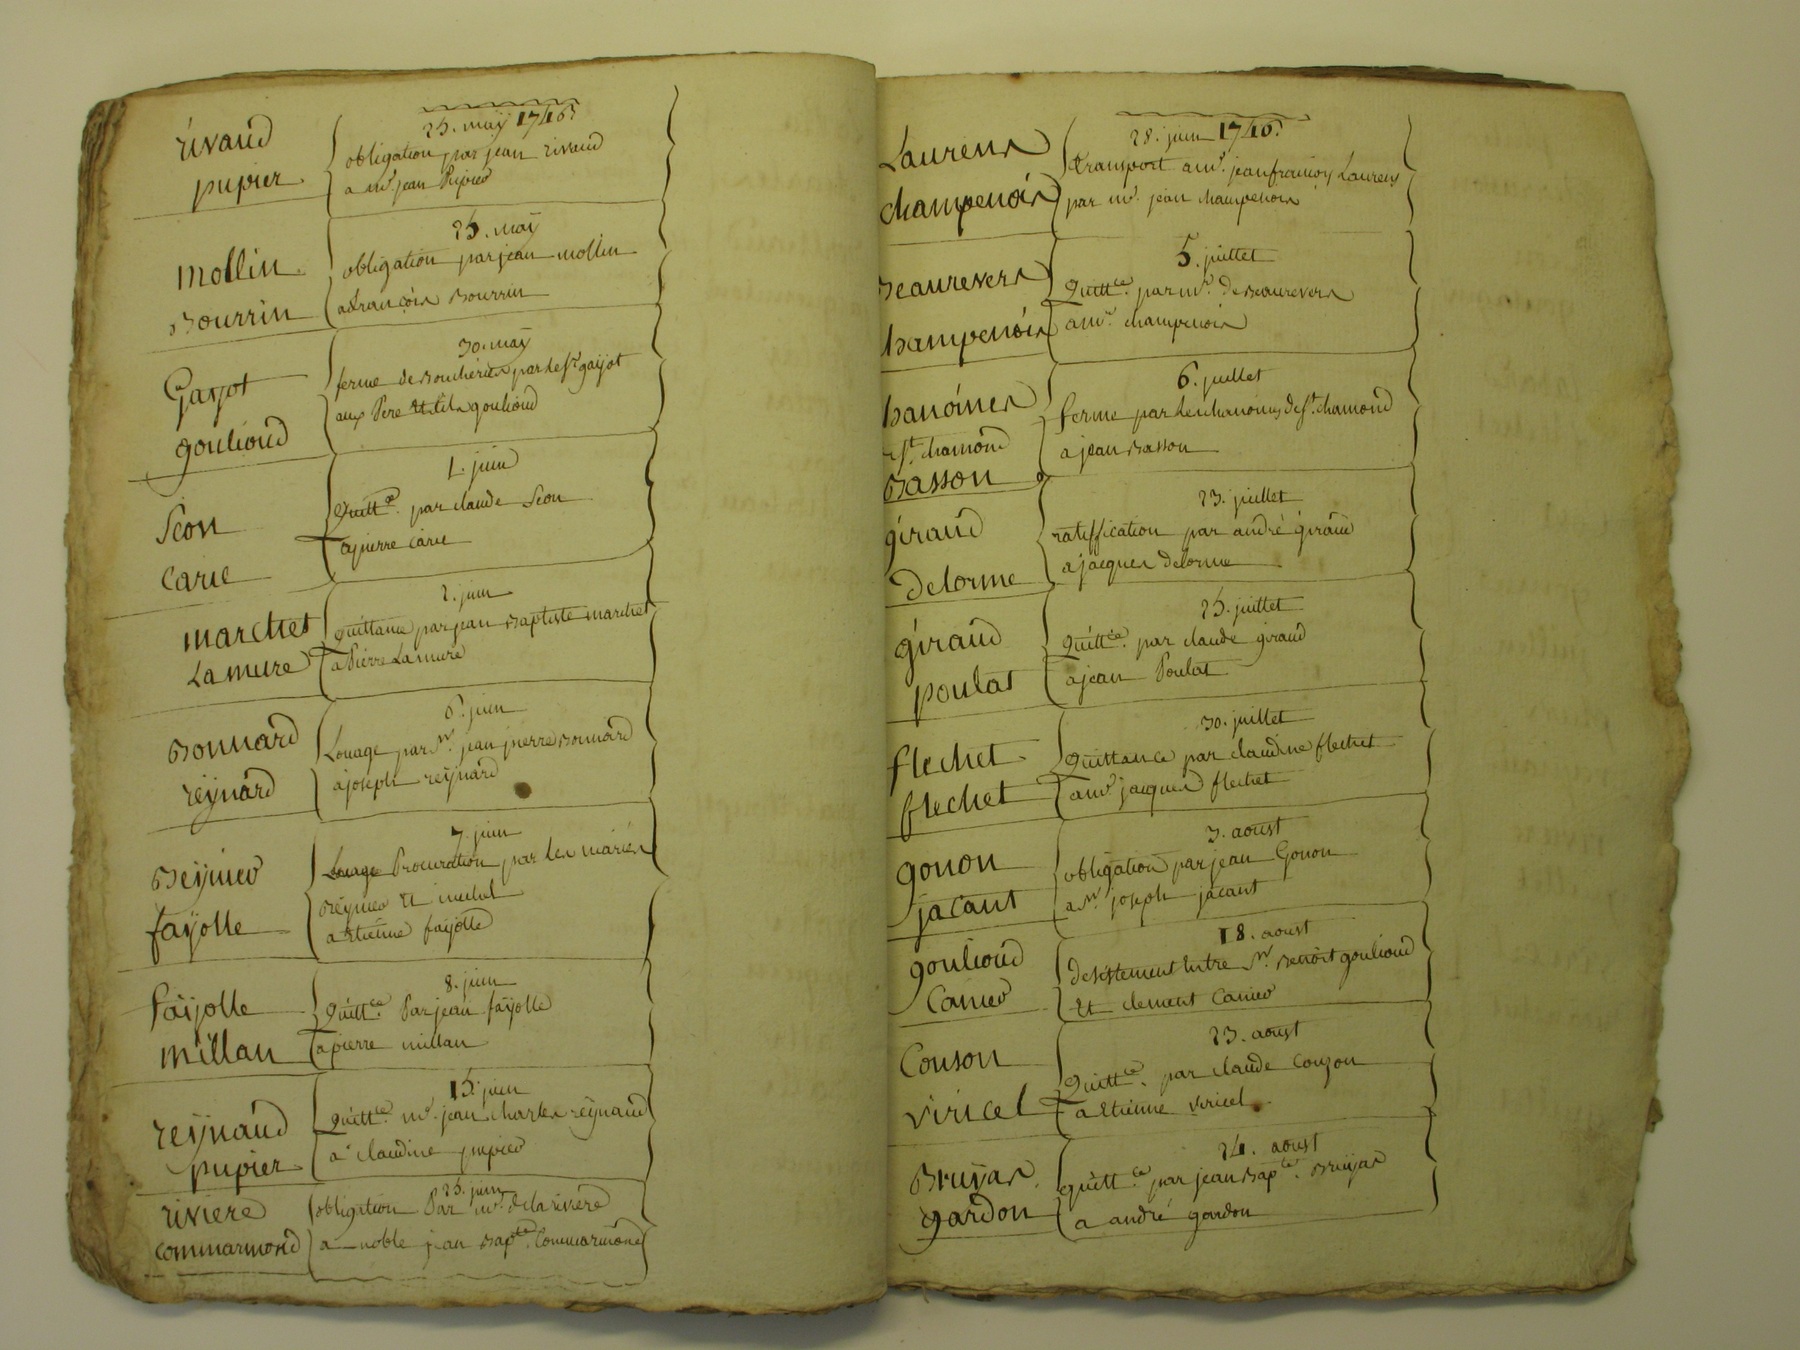 rivaud
pupier
25. may 1746
obligation par jean rivaud
a mr. jean Pupier
mollin
Bourrin
25. may
obligation par jean mollin
a françois Bourrin
Gayot
goulioud
30. may
ferme de Boucheries par le sr. gayot
aux Pere Et fils goulioud
Séon
Carie
1. juin
Quittce. par claude Séon
a pierre carie
marchet
Lamure
2. juin
quittance par jean Baptiste marchet
a Pierre Lamure
Bonnard
reynard
6. juin
Louage par Sr. jean pierre Bonnard
a joseph reynard
Reynier
fayolle
7. juin
Procuration par les mariés
reynier Et
a Etienne fayolle
fayolle
millan
8. juin
Quittce. Par jean fayolle
a pierre millan
reynaud
pupier
15. juin
Quittce. mr. jean charles reynaud
a claudine pupier
riviere
commarmond
25. juin
obligation Par mr. de la riviere
a noble jean Bapte. Commarmond
Laurens
champenois
28. juin 1746
transport a mr. jean françois Laurens
par mr. jean champenois
Beaurevers
hampenois
5. juillet
Quittce. par mr. de Beaurevers
a mr. champenois
hanoines
st. chamond
Basson
6. juillet
ferme par les chanoines de st. chamond
a jean Basson
giraud
Delorme
23. juillet
ratiffication par andré giraud
a jacques delorme
giraud
poulat
25. juillet
Quittce. par claude giraud
a jean Poulat
flechet
flechet
30. juillet
Quittance par claudine flechet
a mr. jacques flechet
gonon
jacant
3. aoust
obligation par jean Gonon
a Sr. joseph jacant
goulioud
Canier
18. aoust
desistement Entre Sr. Benoit goulioud
Et clement Canier
Couson
viricel
23. aoust
Quittce. par claude Couzon
a Etienne viricel
Bruyas
gardon
24. aoust
quittce. par jean Bapte. Bruyas
a andré gardon